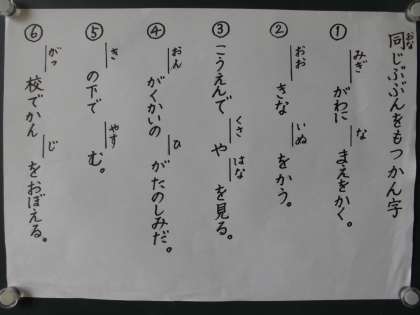 同じぶぶんをもつかん字
おな
① みぎがわに なまえをかく。
② おおきな いぬをかう。
③ こうえんで くさや はなを見る。
④ おんがくかいの ひがたのしみだ。
⑤ きの下で やすむ。
⑥ がっ校でかんじをおぼえる。